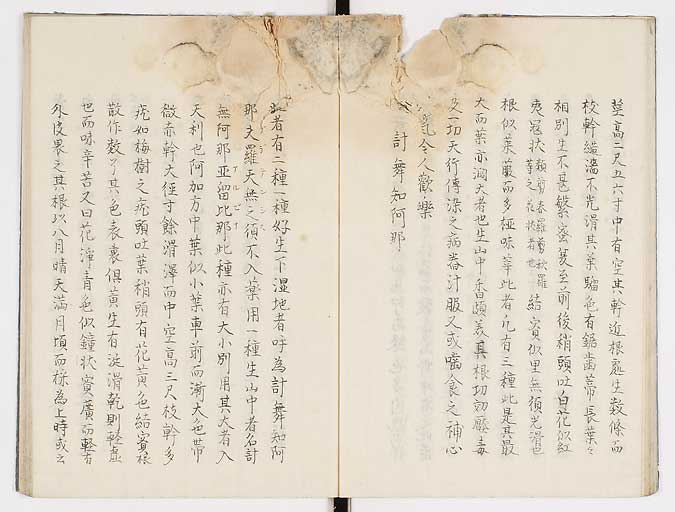 莖高二尺五六寸中有空其幹近根處生数條而
枝幹繊濡不光滑其葉騧色有鋸歯蔕長葉々
相別生不甚繁蜜夏至前後稍頭吐白花似紅
夷冠状 結實似里無須光滑也
根似茱萸而多極味辛此者凡有三種此是其最
大而葉亦濶大者也生山中香頗美其根切効壓毒
及一切天行傳染之病器汁服又或噛食之補心
氣令人歡樂
計舞知阿那
此者有二種一種好生下湿地者呼為計舞知阿
那夫羅天無之須不入薬用一種生山中者名計
無阿那亜留比那此種亦有大小別用其大者入
天利也阿加方中葉似小葉車前而漸大色帯
微赤幹大径寸餘滑澤而中空高三尺枝幹多
疣如梅樹之疣頭吐葉稍頭有花黄色結實根
散作数々其色表裏俱黄生有涎滑乾則軽虚
也而味辛苦又曰花潼青色似鐘状實廣而軽有
外皮畏之其根以八月晴天満月頃而採為上時或云